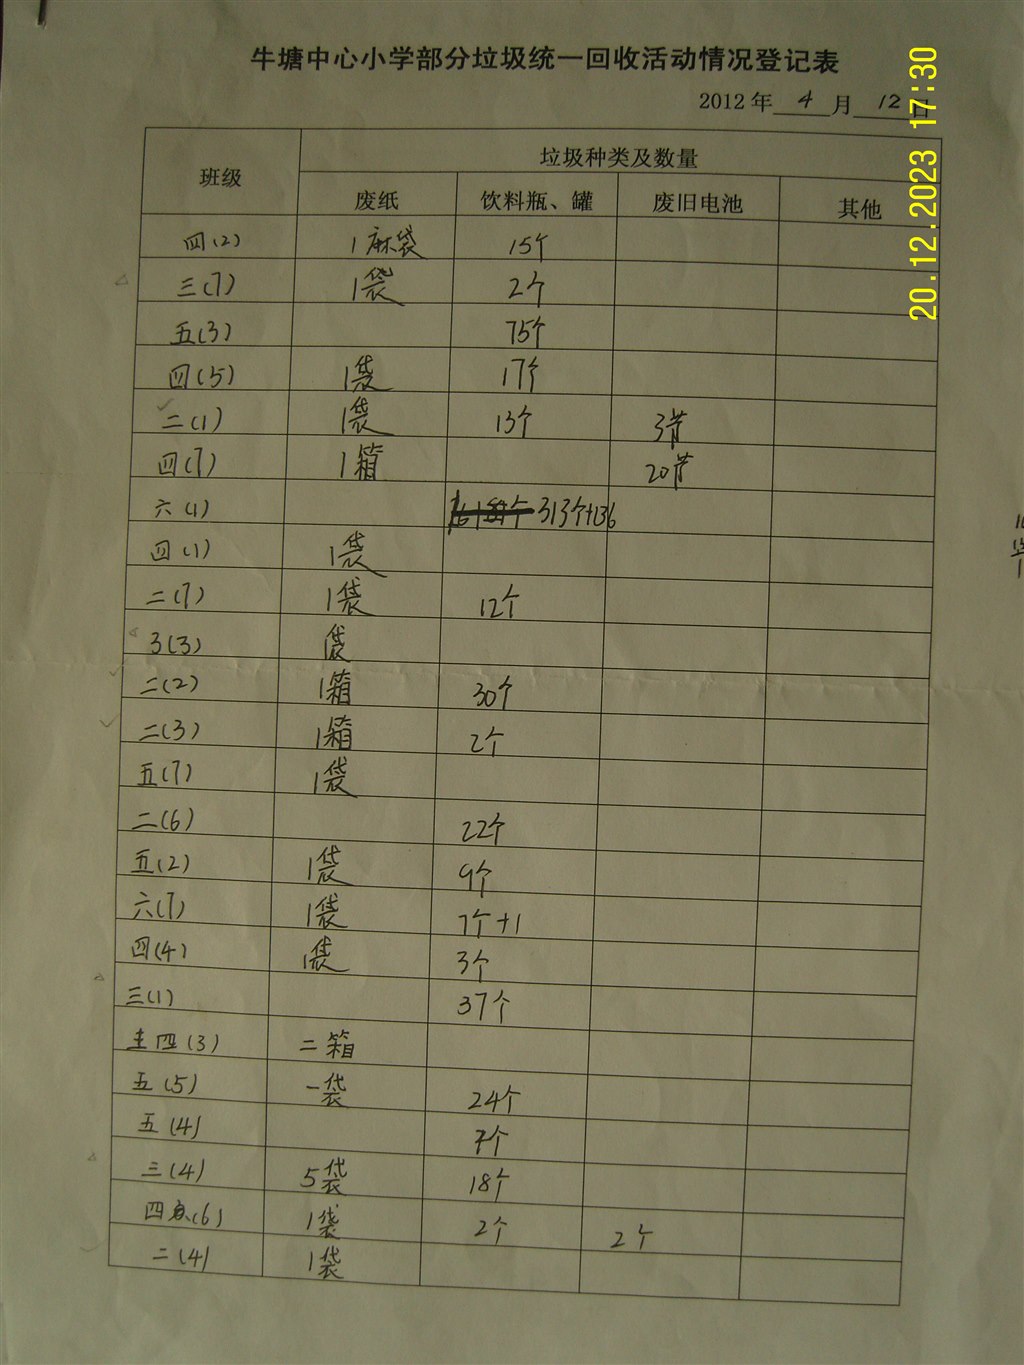 牛塘中心小学部分垃圾统一回收活动情况登记表
2012年 4 月 12 日
20.12.2023 17:30
班级 垃圾种类及数量
废纸 饮料瓶、罐 废旧电池 其他
四(2) 1麻袋 15个
三(7) 1袋 2个
五(3) 75个
四(5) 1袋 17个
二(1) 1袋 13个 3节
四(7) 1箱 20节
六(1) 313个+136
四(1) 1袋
二(7) 1袋 12个
3(3) 1袋
二(2) 1箱 30个
二(3) 1箱 2个
五(7) 1袋
二(6) 22个
五(2) 1袋 9个
六(7) 1袋 7个+1
四(4) 1袋 3个
三(1) 37个
四(3) 二箱
五(5) 一袋 24个
五(4) 7个
三(4) 5袋 18个
四(6) 1袋 2个 2个
二(4) 1袋